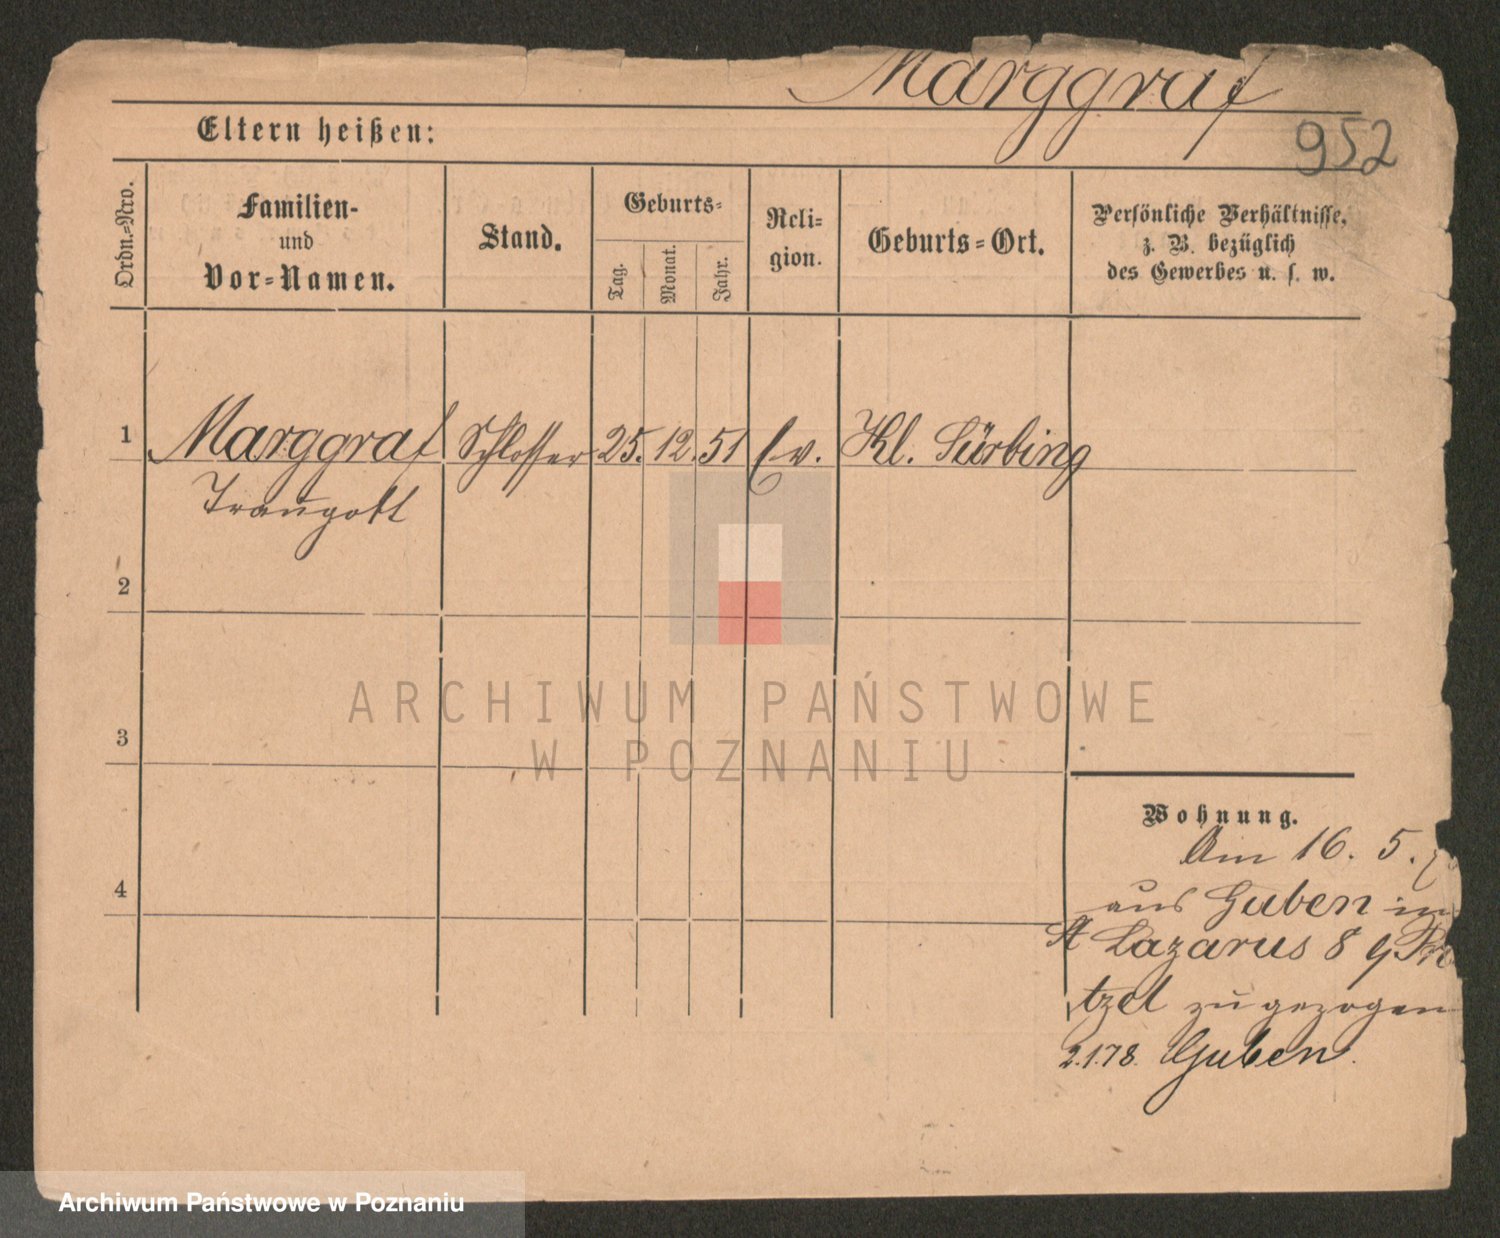 Marggraf
952
Eltern heißen:
Ordn.=Nro.
Familien-
und
Vor=Namen.
Stand.
Geburts=
Tag.
Monat.
Jahr.
Reli-
gion.
Geburts=Ort.
Persönliche Verhältnisse,
z. B. bezüglich
des Gewerbes u. s. w.
1 Marggraf Schlosser 25. 12. 51 Ev. Kl. Sürbing
Traugott
2
3
4
ARCHIWUM PAŃSTWOWE
W POZNANIU
Wohnung.
Am 16. 5.
aus Guben in
St Lazarus 8
tzel zugezogen
2.1.78. Guben.
Archiwum Państwowe w Poznaniu